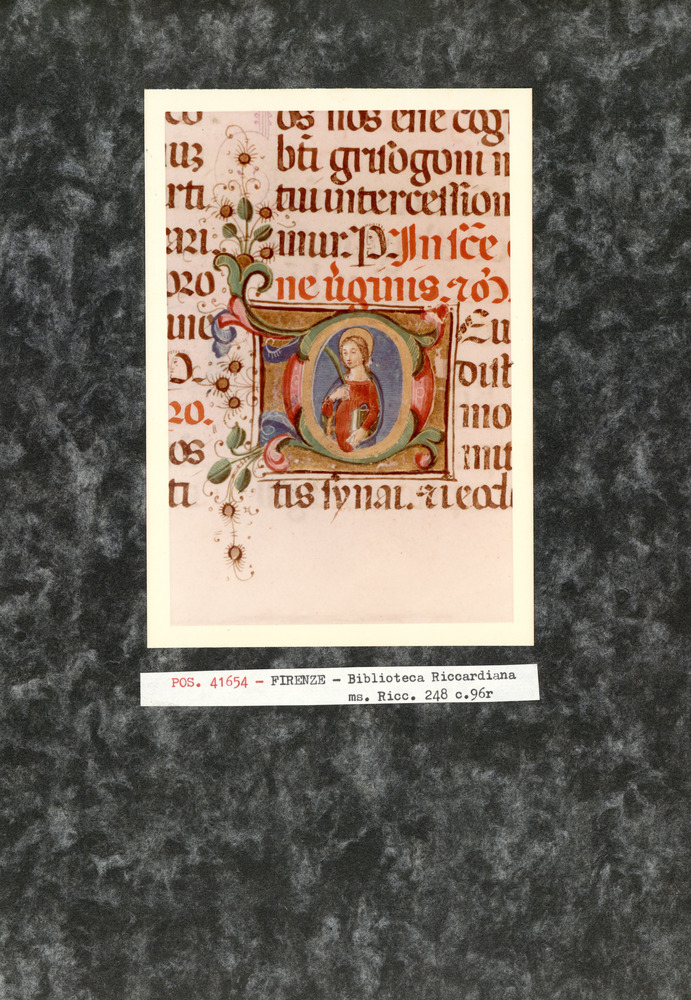 os nos eñe cog
uz bti grisogoni m
rti tiu intercession
ari. imur. P. In sce
oro ne ugınıs. ro.
une Eu
O. dist
ro. mo
os mit
ti tis synai. ⁊ eod
POS. 41654 - FIRENZE - Biblioteca Riccardiana
ms. Ricc. 248 c.96r